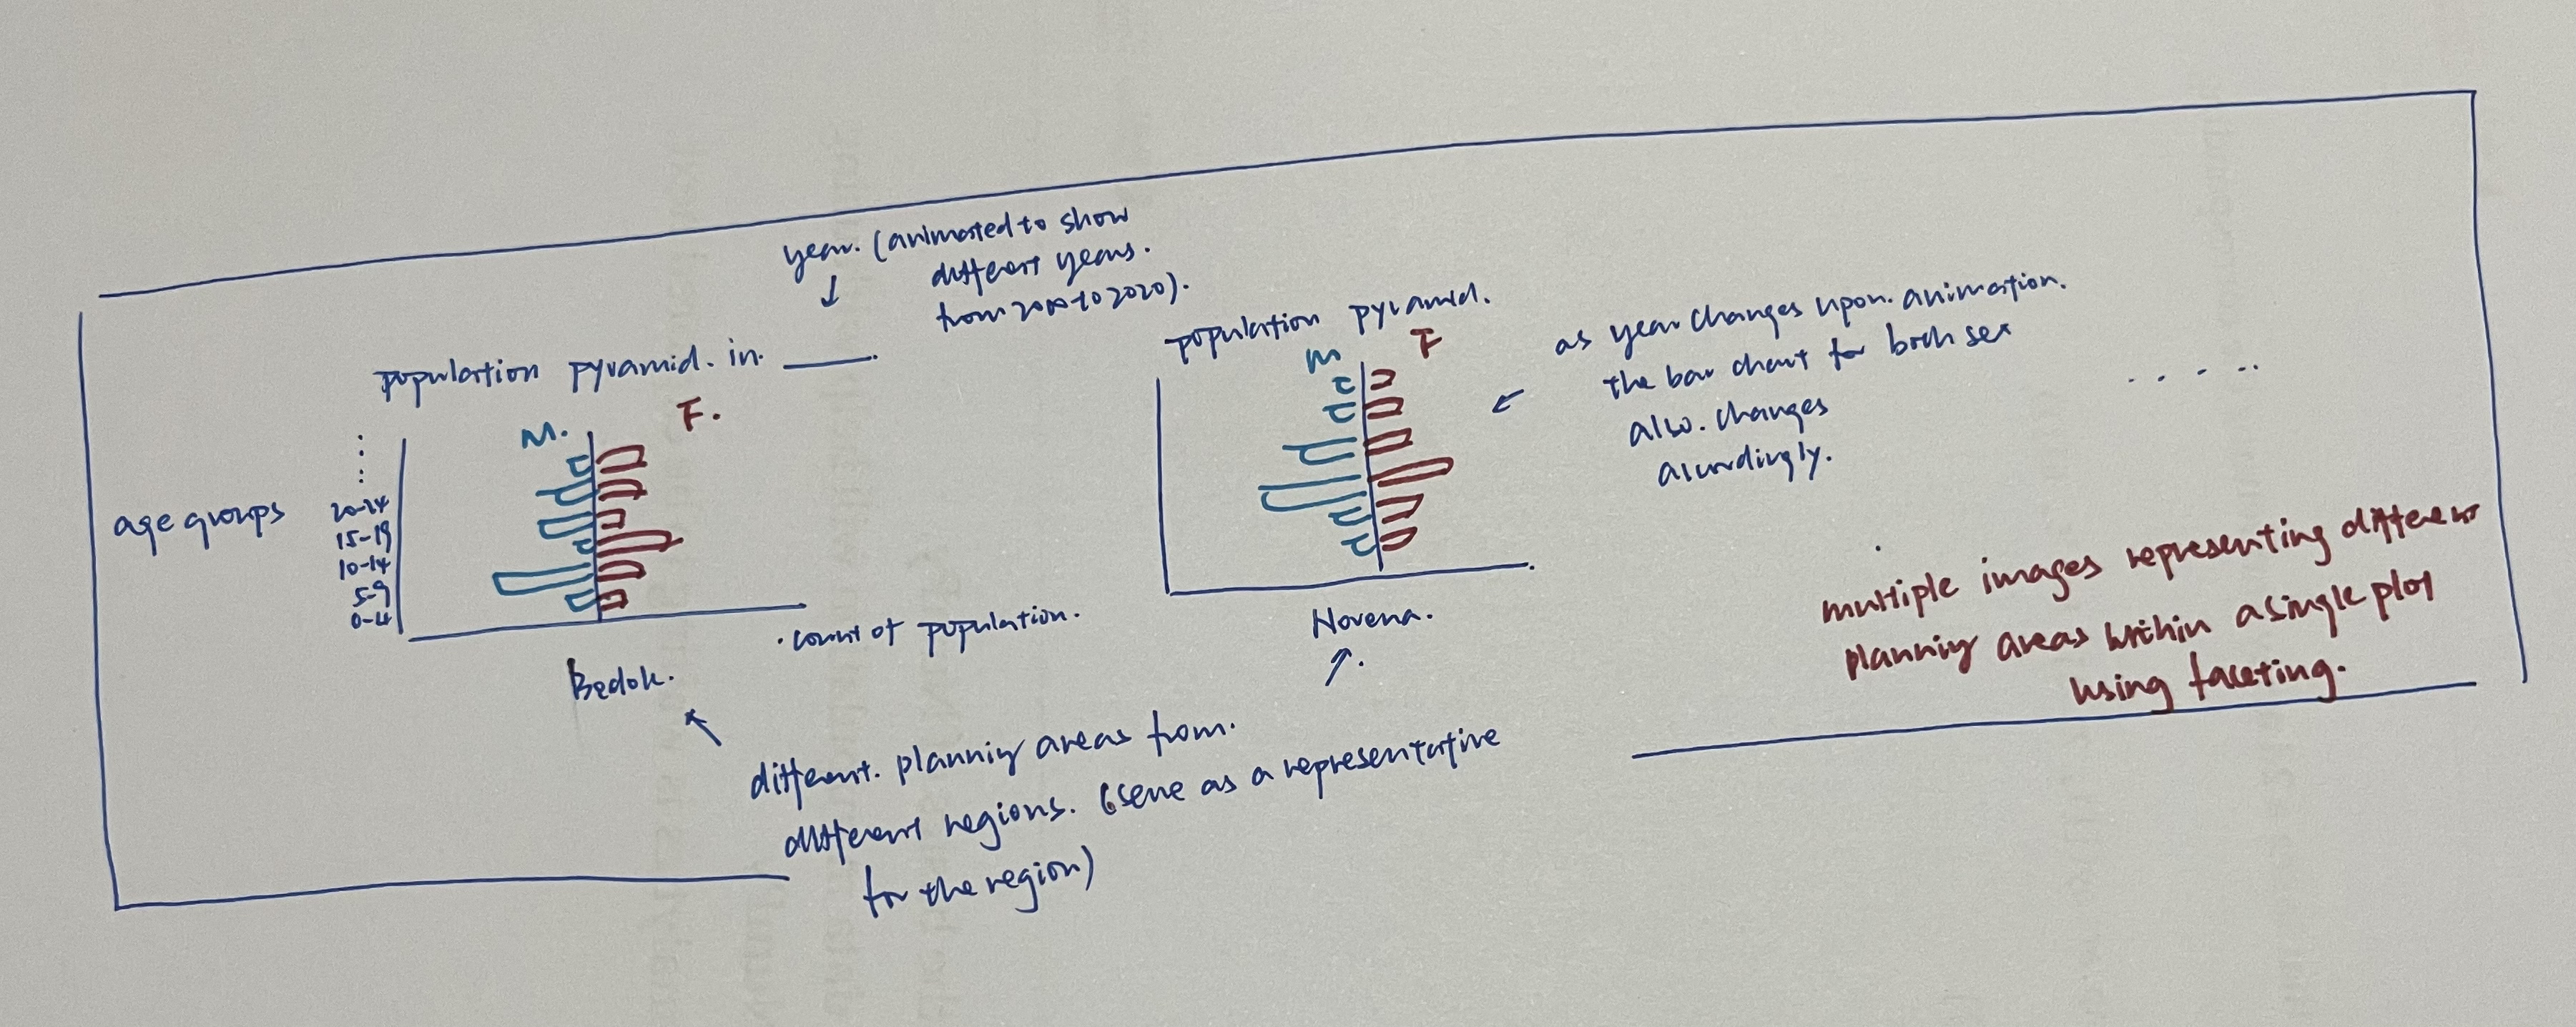 year. (animated to show
different years.
from 2000 to 2020).
population pyramid. in. ____.
M. F.
age groups
20-24
15-19
10-14
5-9
0-4
. count of population.
Bedok.
population pyramid.
M F
Novena.
as year changes upon. animation.
the bar chart for both sex
also. changes
accordingly.
. . . . .
different. planning areas from.
different regions. (serve as a representative
for the region)
multiple images representing different
planning areas within a single plot
using faceting.